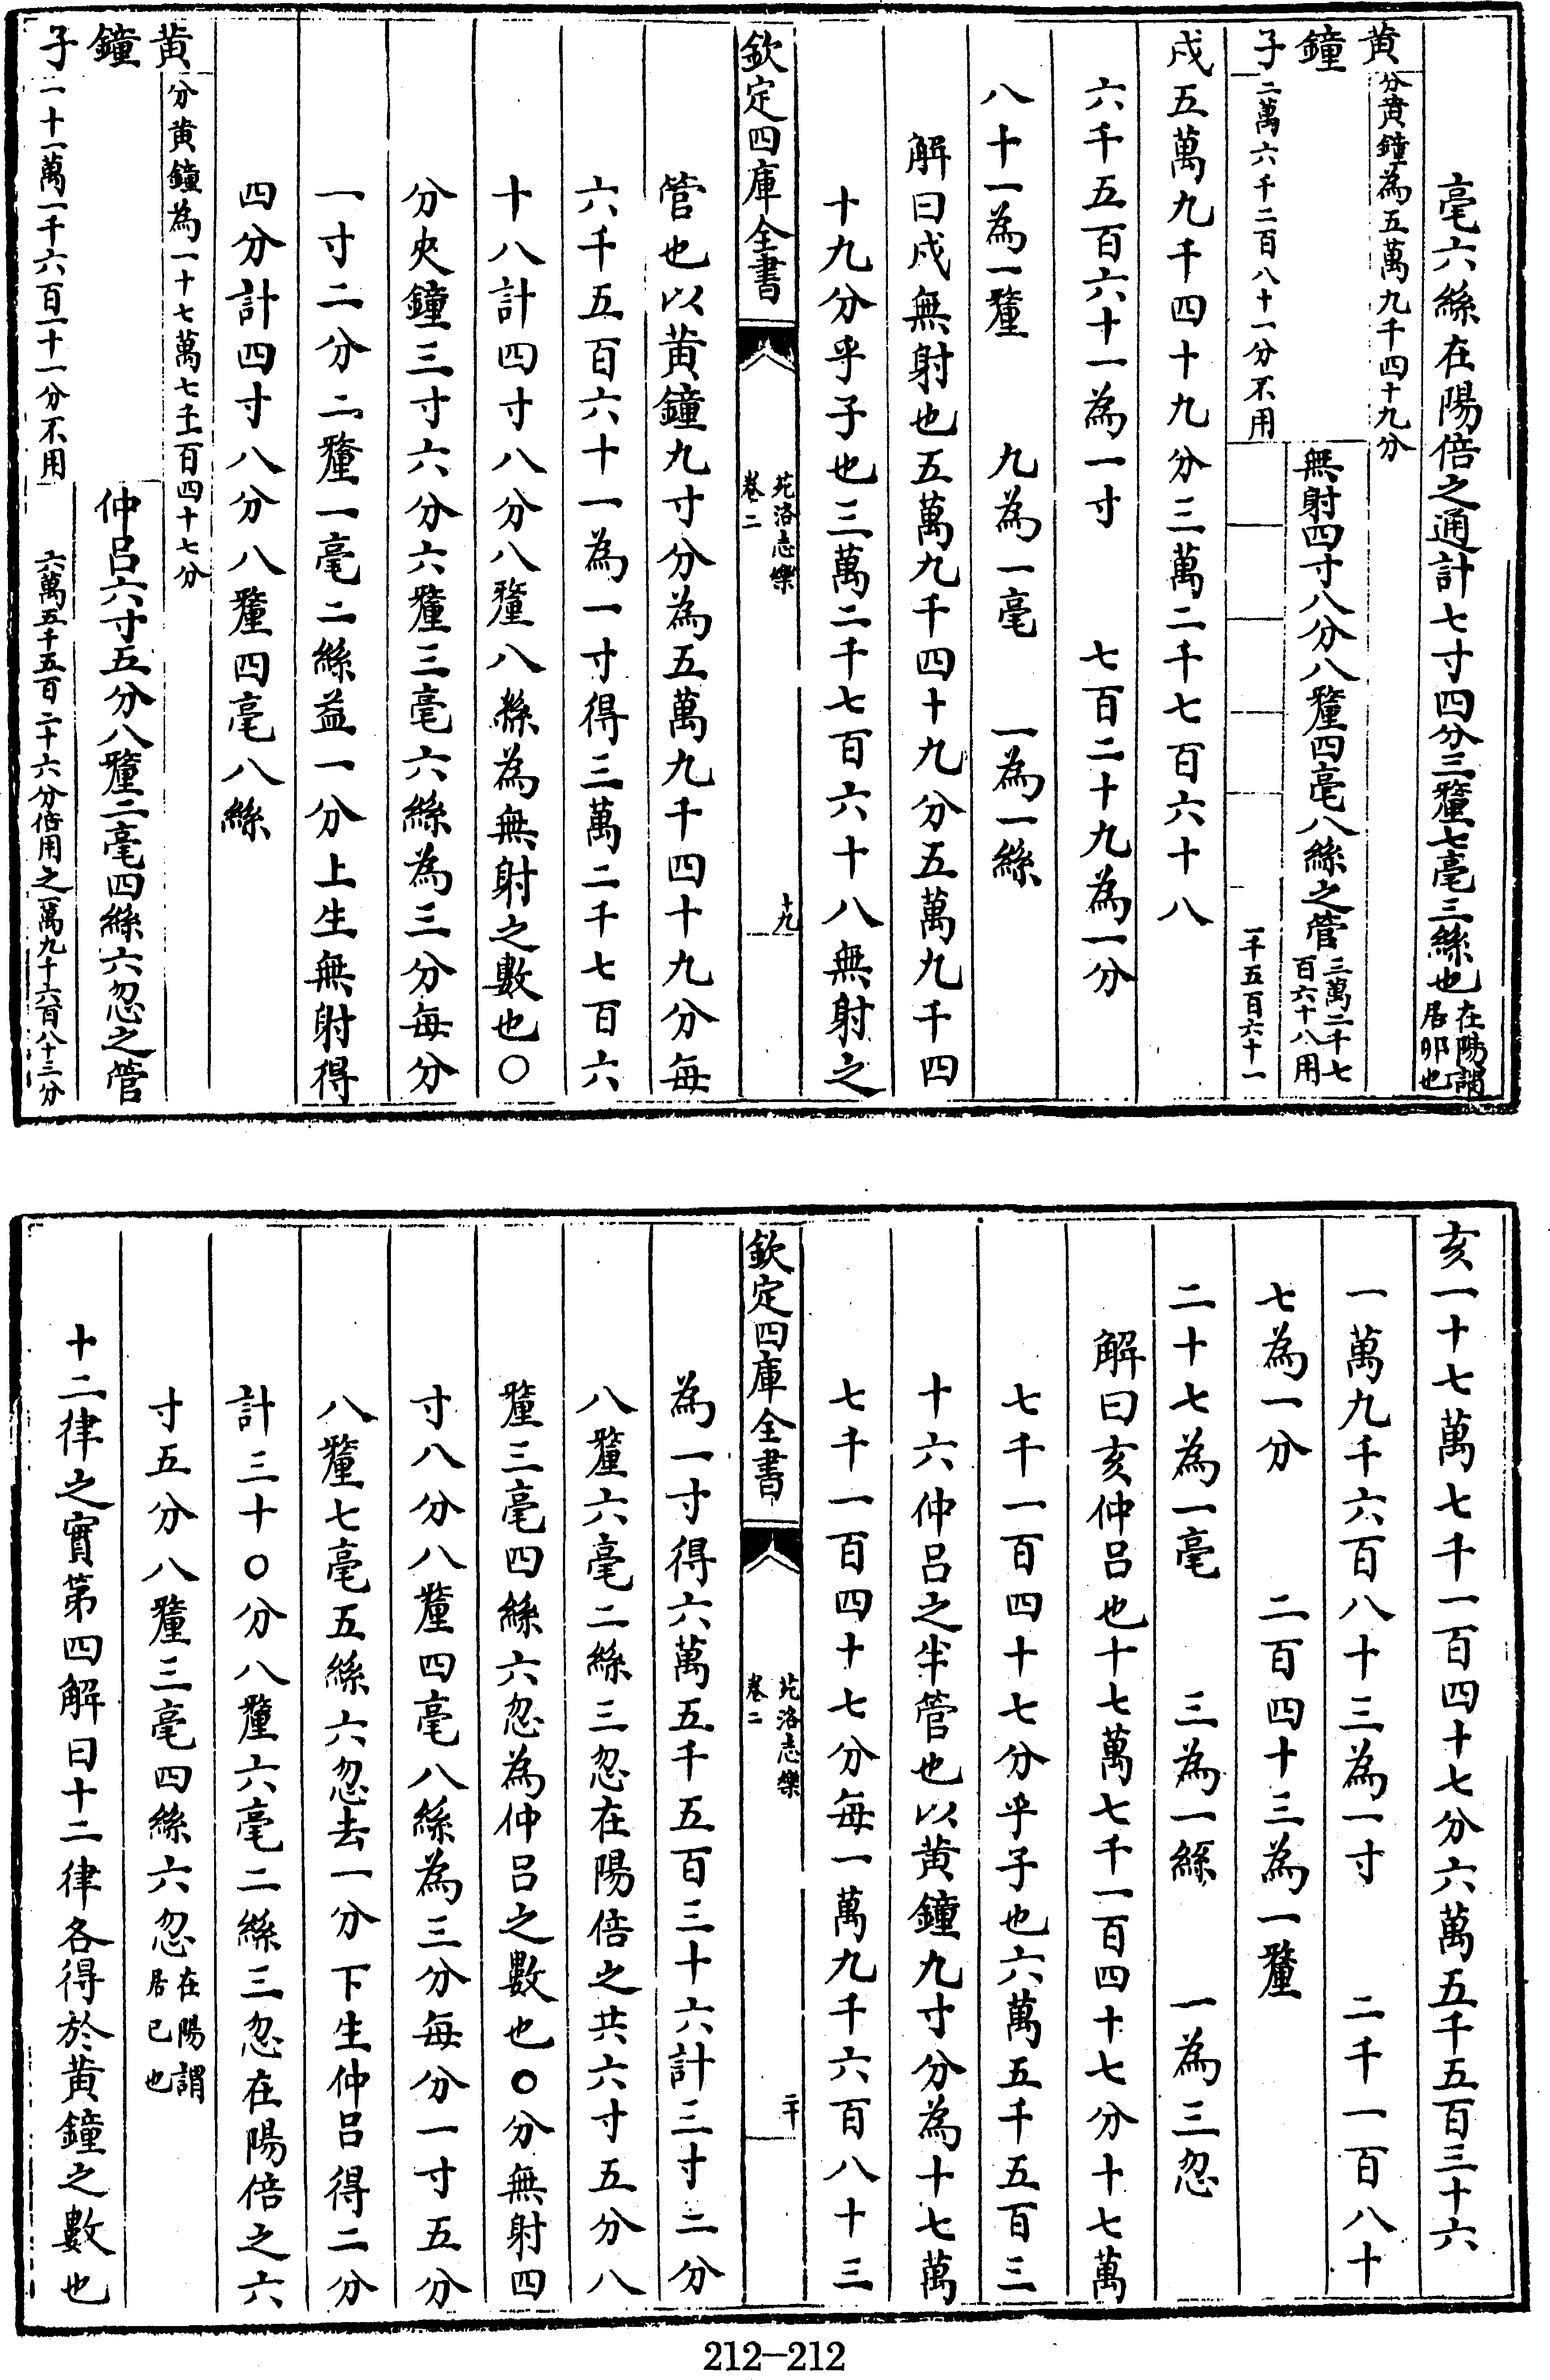 毫六絲在陽倍之通計七寸四分三釐七毫三絲也在陽謂居卯也
黃鐘子
分黃鐘為五萬九千四十九分
二萬六千二百八十一分不用
無射四寸八分八釐四毫八絲之管三萬二千七百六十八用
一千五百六十一
戍五萬九千四十九分三萬二千七百六十八
六千五百六十一為一寸　七百二十九為一分
八十一為一釐　九為一毫　一為一絲
解曰戍無射也五萬九千四十九分五萬九千四
十九分乎子也三萬二千七百六十八無射之
欽定四庫全書　苑洛志樂卷二　十九
管也以黃鐘九寸分為五萬九千四十九分每
六千五百六十一為一寸得三萬二千七百六
十八計四寸八分八釐八絲為無射之數也○
分夾鐘三寸六分六釐三毫六絲為三分每分
一寸二分二釐一毫二絲益一分上生無射得
四分計四寸八分八釐四毫八絲
黃鐘子
分黃鐘為一十七萬七千一百四十七分
一十一萬一千六百一十一分不用
仲呂六寸五分八釐二毫四絲六忽之管
六萬五千五百二十六分倍用之一萬九十六百八十三分
亥一十七萬七千一百四十七分六萬五千五百三十六
一萬九千六百八十三為一寸　二千一百八十
七為一分　二百四十三為一釐
二十七為一毫　三為一絲　一為三忽
解曰亥仲呂也十七萬七千一百四十七分十七萬
七千一百四十七分乎子也六萬五千五百三
十六仲呂之半管也以黃鐘九寸分為十七萬
七千一百四十七分每一萬九千六百八十三
欽定四庫全書　苑洛志樂卷二　二十
為一寸得六萬五千五百三十六計三寸二分
八釐六毫二絲三忽在陽倍之共六寸五分八
釐三毫四絲六忽為仲呂之數也○分無射四
寸八分八釐四毫八絲為三分每分一寸五分
八釐七毫五絲六忽去一分下生仲呂得二分
計三十○分八釐六毫二絲三忽在陽倍之六
寸五分八釐三毫四絲六忽在陽謂居已也
十二律之實第四解曰十二律各得於黃鐘之數也
212—212